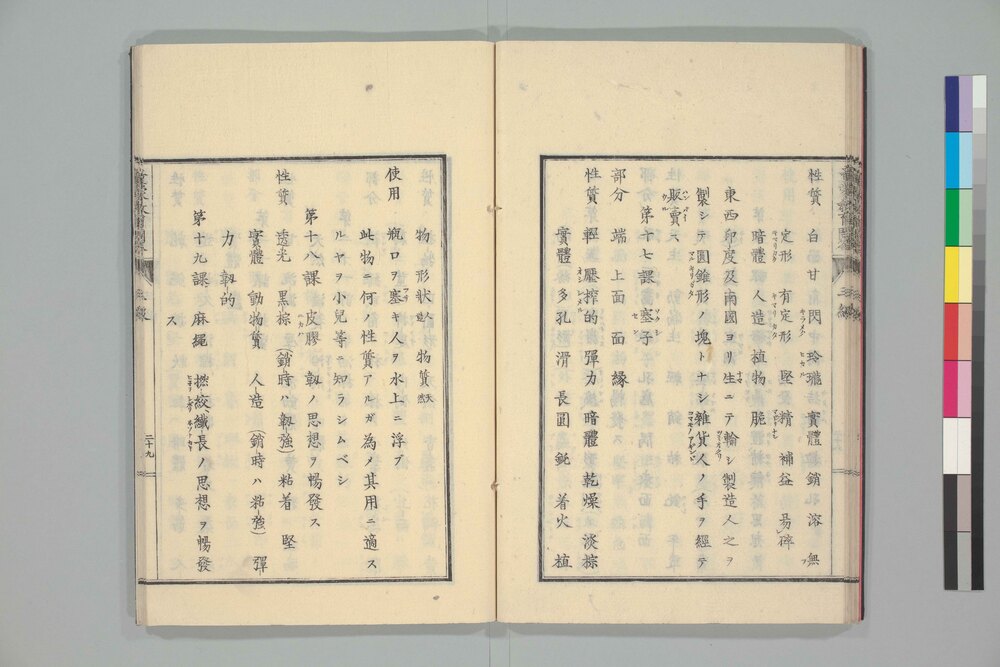 性質 白色甘 閃 玲瓏 實體 銷 溶 無
定形 有定形 堅 精 補益 易碎
暗體 人造 植物 脆
東西印度及南國ヨリ生ニテ輸シ製造人之ヲ
製シテ圓錐形ノ塊トナシ雜貨人ノ手ヲ經テ
販賣ス
第十七課 塞子
部分 端 上面 面 緣
性質 輕 壓搾的 彈力 暗體 乾燥 淡棕
實體 多孔 滑 長圓 鈍 着火 植
物 物 形狀人造 物質天然
使用 瓶口ヲ塞キ人ヲ水上ニ浮ブ
此物ニ何ノ性質アルガ為メ其用ニ適ス
ルヤヲ小兒等ニ知ラシムベシ
第十八課 皮膠 韌ノ思想ヲ暢發ス
性質 透光 黒棕 (銷時ハ韌強) 粘着 堅
實體 動物質 人造 (銷時ハ粘強) 彈
力 韌的
第十九課 麻繩 撚絞、纎長ノ思想ヲ暢發
ス
二十九